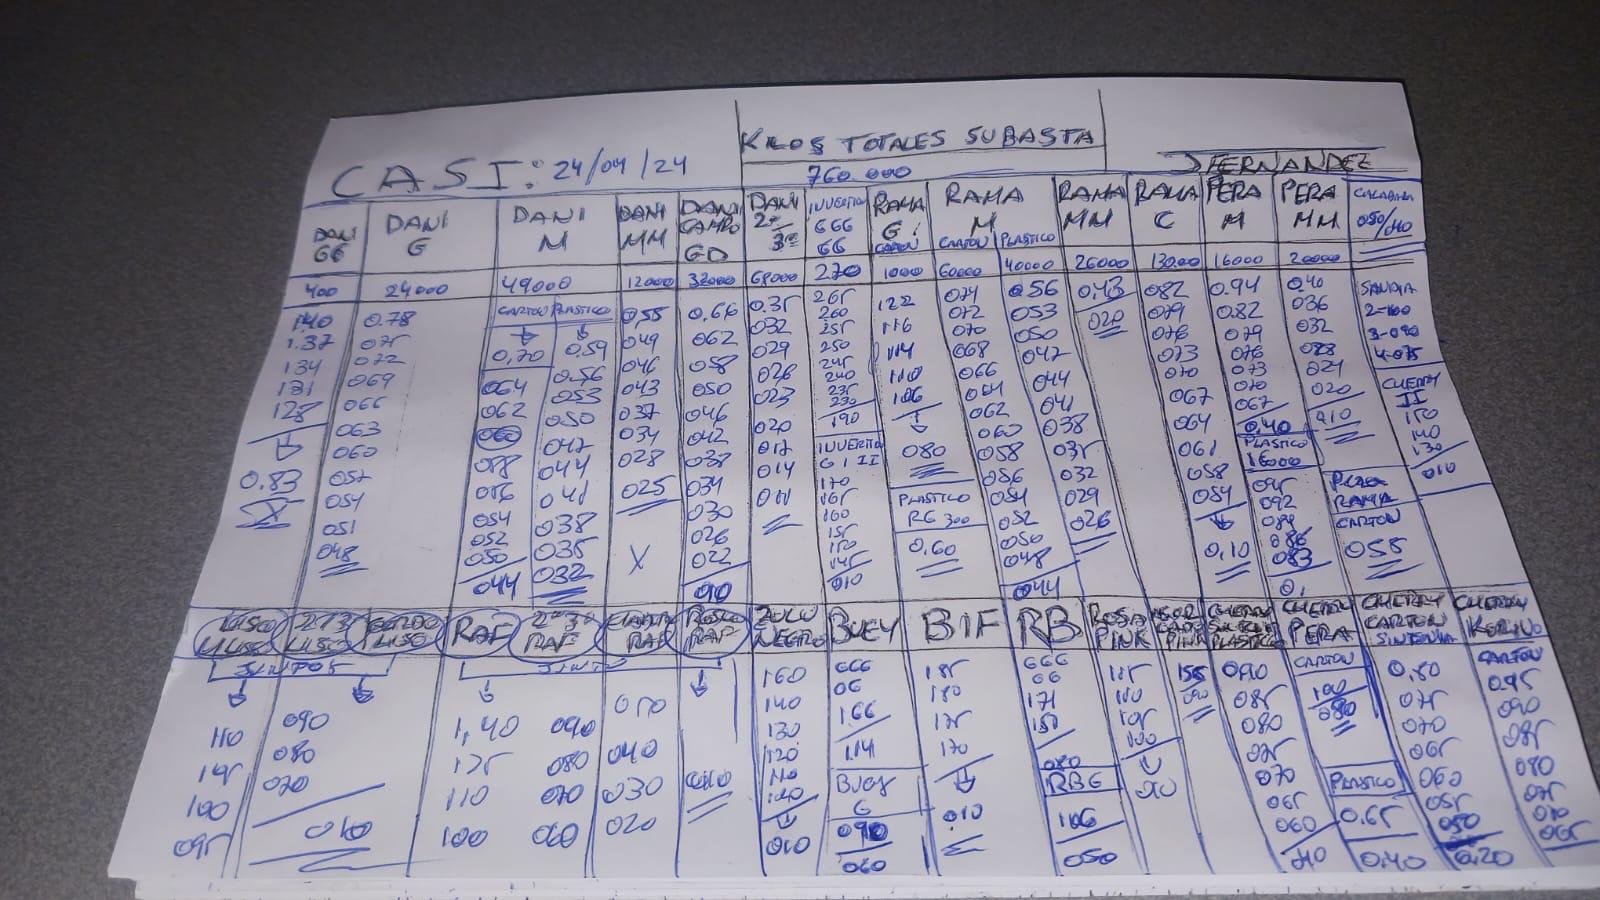 KILOS TOTALES SUBASTA
CASI: 24/04/24
760.000
J FERNANDEZ
DANI GG
DANI G
DANI M
DANI MM
DANI CAMPO GD
DANI 2ª 3ª
INVERTIDO 666 66
RAMA G CARTON
RAMA M CARTON PLASTICO
RAMA MM
RAMA C
PERA M
PERA MM
050/040
400 24000 49000 12000 32000 68000 270 1000 60000 40000 26000 13000 16000 20000
140
137
134
131
128
0.83
0.78
075
072
069
066
063
060
057
054
051
048
CARTON PLASTICO
0,70
064
062
060
056
054
052
050
044
0.59
0.56
053
050
047
044
041
038
035
032
055
049
046
043
037
034
028
025
X
0.66
062
058
050
046
042
038
034
030
026
022
0.35
032
029
026
023
020
017
014
011
265
260
255
250
245
240
235
230
190
INVERTIDO G I II
170
165
160
155
150
145
010
122
116
114
110
106
080
PLASTICO
RG 300
0,60
074
072
070
068
066
064
062
060
058
056
054
052
050
048
044
0.56
053
050
047
044
041
038
035
032
029
026
0.43
020
082
079
076
073
070
067
064
061
058
054
0,10
0.94
0.82
079
076
073
070
067
0,40
PLASTICO
16000
095
092
089
086
083
0,40
036
032
028
024
020
010
RAMA
CARTON
055
SANDIA
2-100
3-090
4-075
CHERRY
II
150
140
130
010
2ª/3ª LISO
GORDO LISO
RAF
2ª 3ª RAF
RAF
ZULU NEGRO
BUEY
BIF
RB
ROSA PINK
CHERRY PERA
CHERRY CARTON
JUNTOS
110
105
100
095
090
080
070
040
1,40
125
110
100
090
080
070
060
050
040
030
020
160
140
130
120
110
010
666
66
166
114
BUEY
G
090
060
185
180
175
170
010
666
66
171
150
080
RBG
106
050
115
110
105
100
155
090
090
085
080
075
070
065
060
CARTON
100
080
PLASTICO
0.65
0.40
0,80
075
070
065
060
055
050
0,20
CARTON
0.95
090
085
080
075
070
065